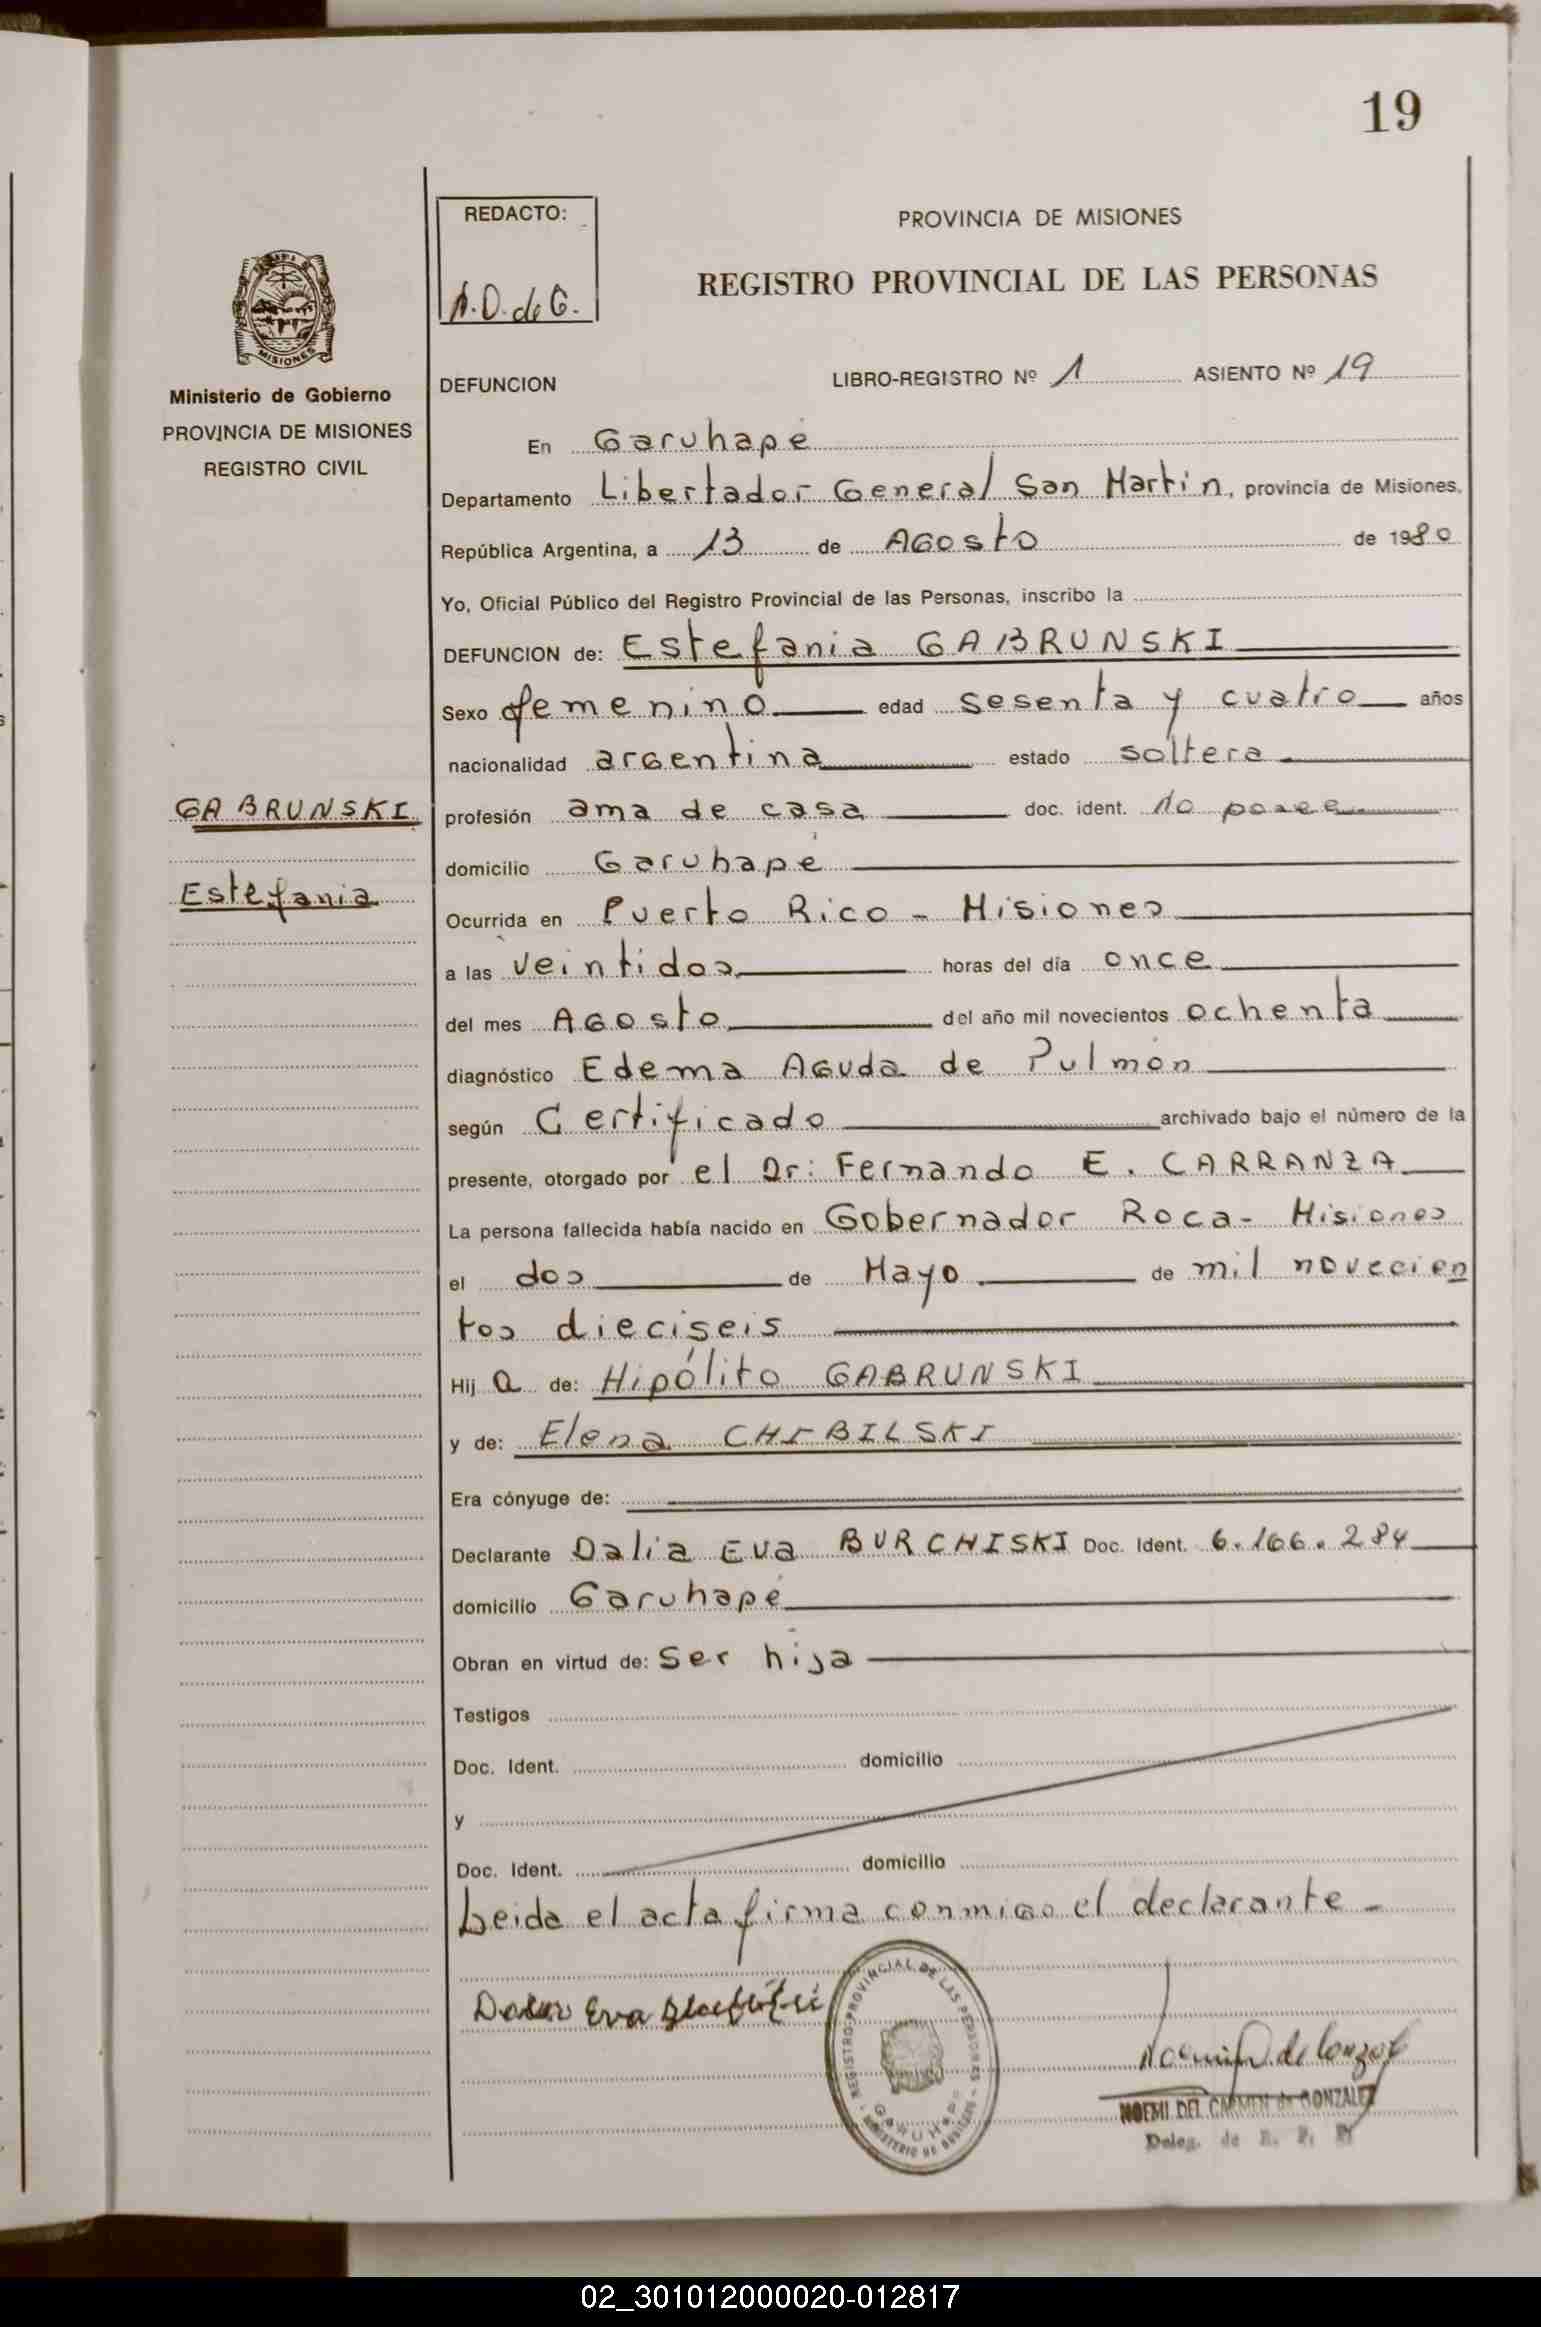 19
REDACTO:
A.D. de G.
PROVINCIA DE MISIONES
REGISTRO PROVINCIAL DE LAS PERSONAS
MISIONES
Ministerio de Gobierno
PROVINCIA DE MISIONES
REGISTRO CIVIL
DEFUNCION LIBRO-REGISTRO Nº 1 ASIENTO Nº 19
En Garuhapé
Departamento Libertador General San Martín, provincia de Misiones,
República Argentina, a 13 de Agosto de 1980
Yo, Oficial Público del Registro Provincial de las Personas, inscribo la
DEFUNCION de: Estefania GABRUNSKI
Sexo femenino edad sesenta y cuatro años
nacionalidad argentina estado soltera
GABRUNSKI
Estefania
profesión ama de casa doc. ident. no posee
domicilio Garuhapé
Ocurrida en Puerto Rico - Misiones
a las veintidos horas del día once
del mes Agosto del año mil novecientos ochenta
diagnóstico Edema Aguda de Pulmón
según Certificado archivado bajo el número de la
presente, otorgado por el Dr: Fernando E. CARRANZA
La persona fallecida había nacido en Gobernador Roca - Misiones
el dos de Mayo de mil novecien
tos dieciseis
Hij a de: Hipólito GABRUNSKI
y de: Elena CHIBILSKI
Era cónyuge de:
Declarante Dalia Eva BURCHISKI Doc. Ident. 6.166.284
domicilio Garuhapé
Obran en virtud de: ser hija
Testigos
Doc. Ident. domicilio
y
Doc. Ident. domicilio
Leida el acta firma conmigo el declarante -
Eva
REGISTRO PROVINCIAL DE LAS PERSONAS
GARUHAPE
NOEMI DEL CARMEN de GONZALEZ
Deleg. de R. P. P.
02_301012000020-012817